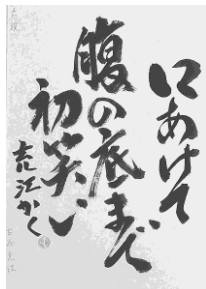 口あけて
腹の底まで
初笑い
かく